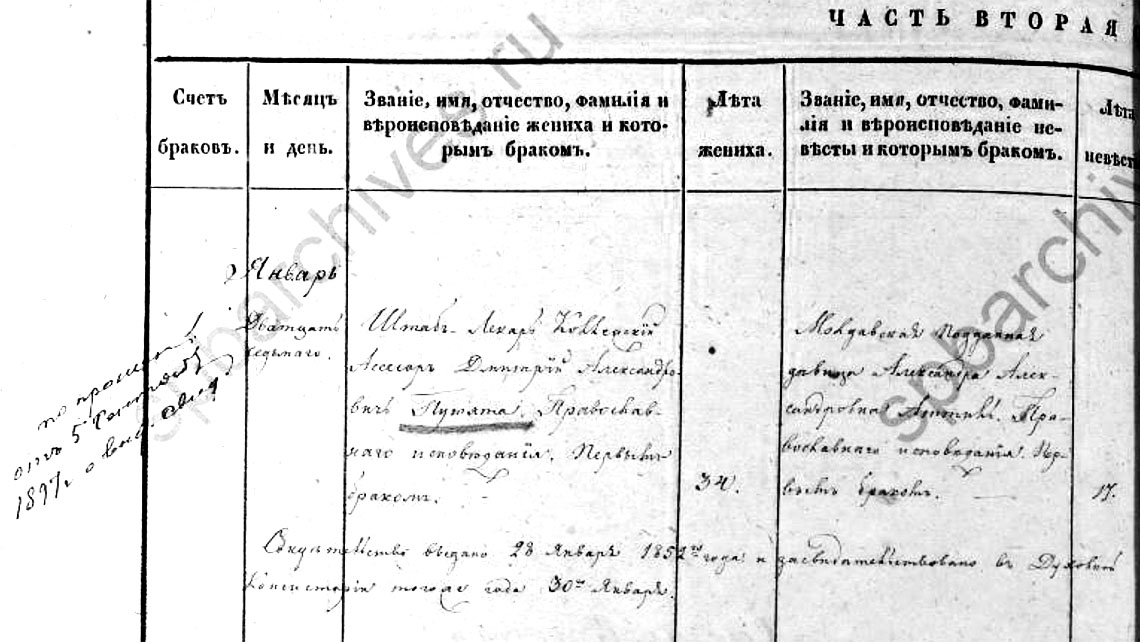 ЧАСТЬ ВТОРАЯ
Счетъ
браковъ.
Мѣсяцъ
и день.
Званіе, имя, отчество, фамилія и
вѣроисповѣданіе жениха и кото-
рымъ бракомъ.
Лѣта
жениха.
Званіе, имя, отчество, фами-
лія и вѣроисповѣданіе не-
вѣсты и которымъ бракомъ.
Лѣта
невѣст
Январь
Двадцать
седьмаго.
Штабъ-Лекарь Коллежскій
Асессоръ Дмитрій Александро-
вичъ Путята. Православ-
наго исповѣданія. Первымъ
бракомъ.
34.
Молдавская Подданная
дѣвица Александра Алек-
сандровна Пра-
вославнаго исповѣданія. Пер-
вымъ бракомъ.
17.
по
отъ 5
1897 г о
Свидѣтельство выдано 28 Январь 1852го года и засвидѣтельствовано въ Духовной
Консисторіи тогоже года 30го Январь.
spbarchives.ru
spbarchiv